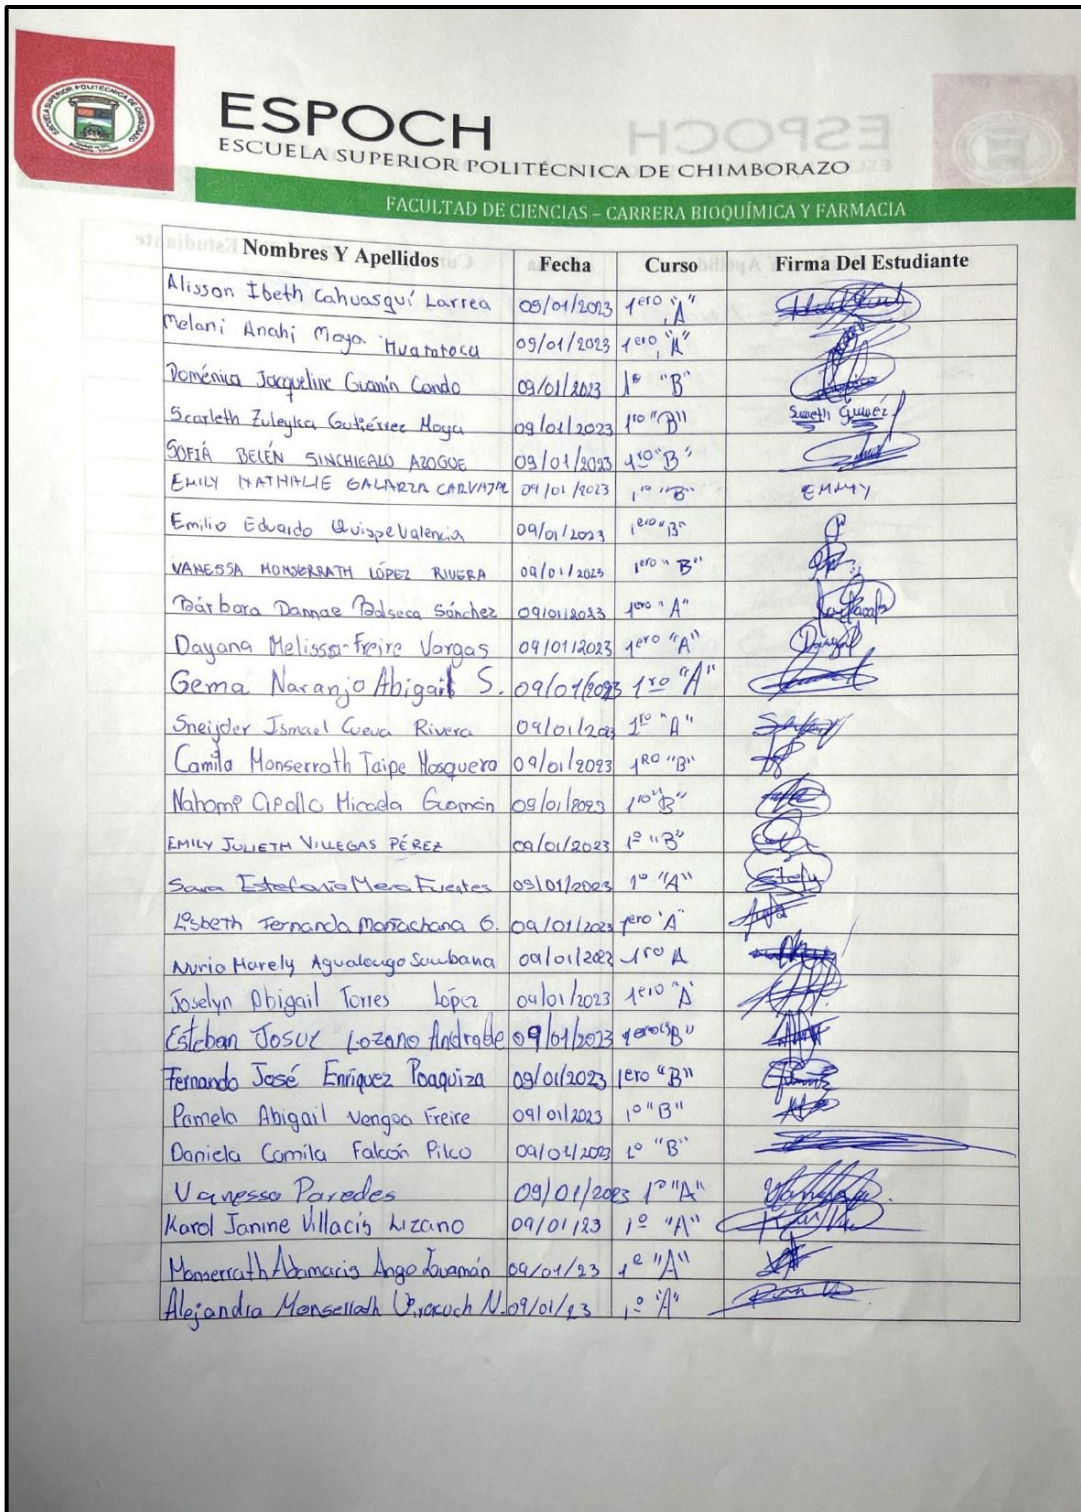 ESCUELA SUPERIOR POLITÉCNICA DE CHIMBORAZO
ESPOCH
ESCUELA SUPERIOR POLITÉCNICA DE CHIMBORAZO
FACULTAD DE CIENCIAS – CARRERA BIOQUÍMICA Y FARMACIA
Nombres Y Apellidos Fecha Curso Firma Del Estudiante
Alisson Ibeth Cahuasquí Larrea 09/01/2023 1ero "A"
Melani Anahi Moya Huatatoca 09/01/2023 1ero "A"
Doménica Jacqueline Guamín Cando 09/01/2023 1º "B"
Scarleth Zuleyka Gutiérrez Moya 09/01/2023 1ro "B"
SOFIÁ BELÉN SINCHIGALO AZOGUE 09/01/2023 1ro "B"
EMILY NATHALIE GALARZA CARVAJAL 09/01/2023 1ro "B" EMMY
Emilio Eduardo Quispe Valencia 09/01/2023 1ero "B"
VANESSA MONSERRATH LÓPEZ RIVERA 09/01/2023 1ero "B"
Bárbara Dannae Balseca Sánchez 09/01/2023 1ero "A"
Dayana Melissa Freire Vargas 09/01/2023 1ero "A"
Gema Naranjo Abigail S. 09/01/2023 1ro "A"
Sneijder Ismael Cueva Rivera 09/01/2023 1ro "A"
Camila Monserrath Taipe Mosquera 09/01/2023 1RO "B"
Nahomi Micada Guamán 09/01/2023 1ro "B"
EMILY JULIETH VILLEGAS PÉREZ 09/01/2023 1º "B"
Sara Estefanía Mera Fuentes 09/01/2023 1º "A" Stefy
Lisbeth Fernanda G. 09/01/2023 1ero "A"
Nuria Marely Agualongo 09/01/2023 1ro A
Joselyn Abigail Torres López 09/01/2023 1ero "A"
Esteban Josue Lozano Andrade 09/01/2023 1ero "B"
Fernando José Enríquez Poaquiza 09/01/2023 1ero "B"
Pamela Abigail Vengoa Freire 09/01/2023 1º "B"
Daniela Camila Falcón Pilco 09/01/2023 1º "B"
Vanessa Paredes 09/01/2023 1º "A"
Karol Janine Villacis Lizano 09/01/23 1º "A"
Monserrath Adamaris Ango 09/01/23 1º "A"
Alejandra Monserrath N. 09/01/23 1º "A"